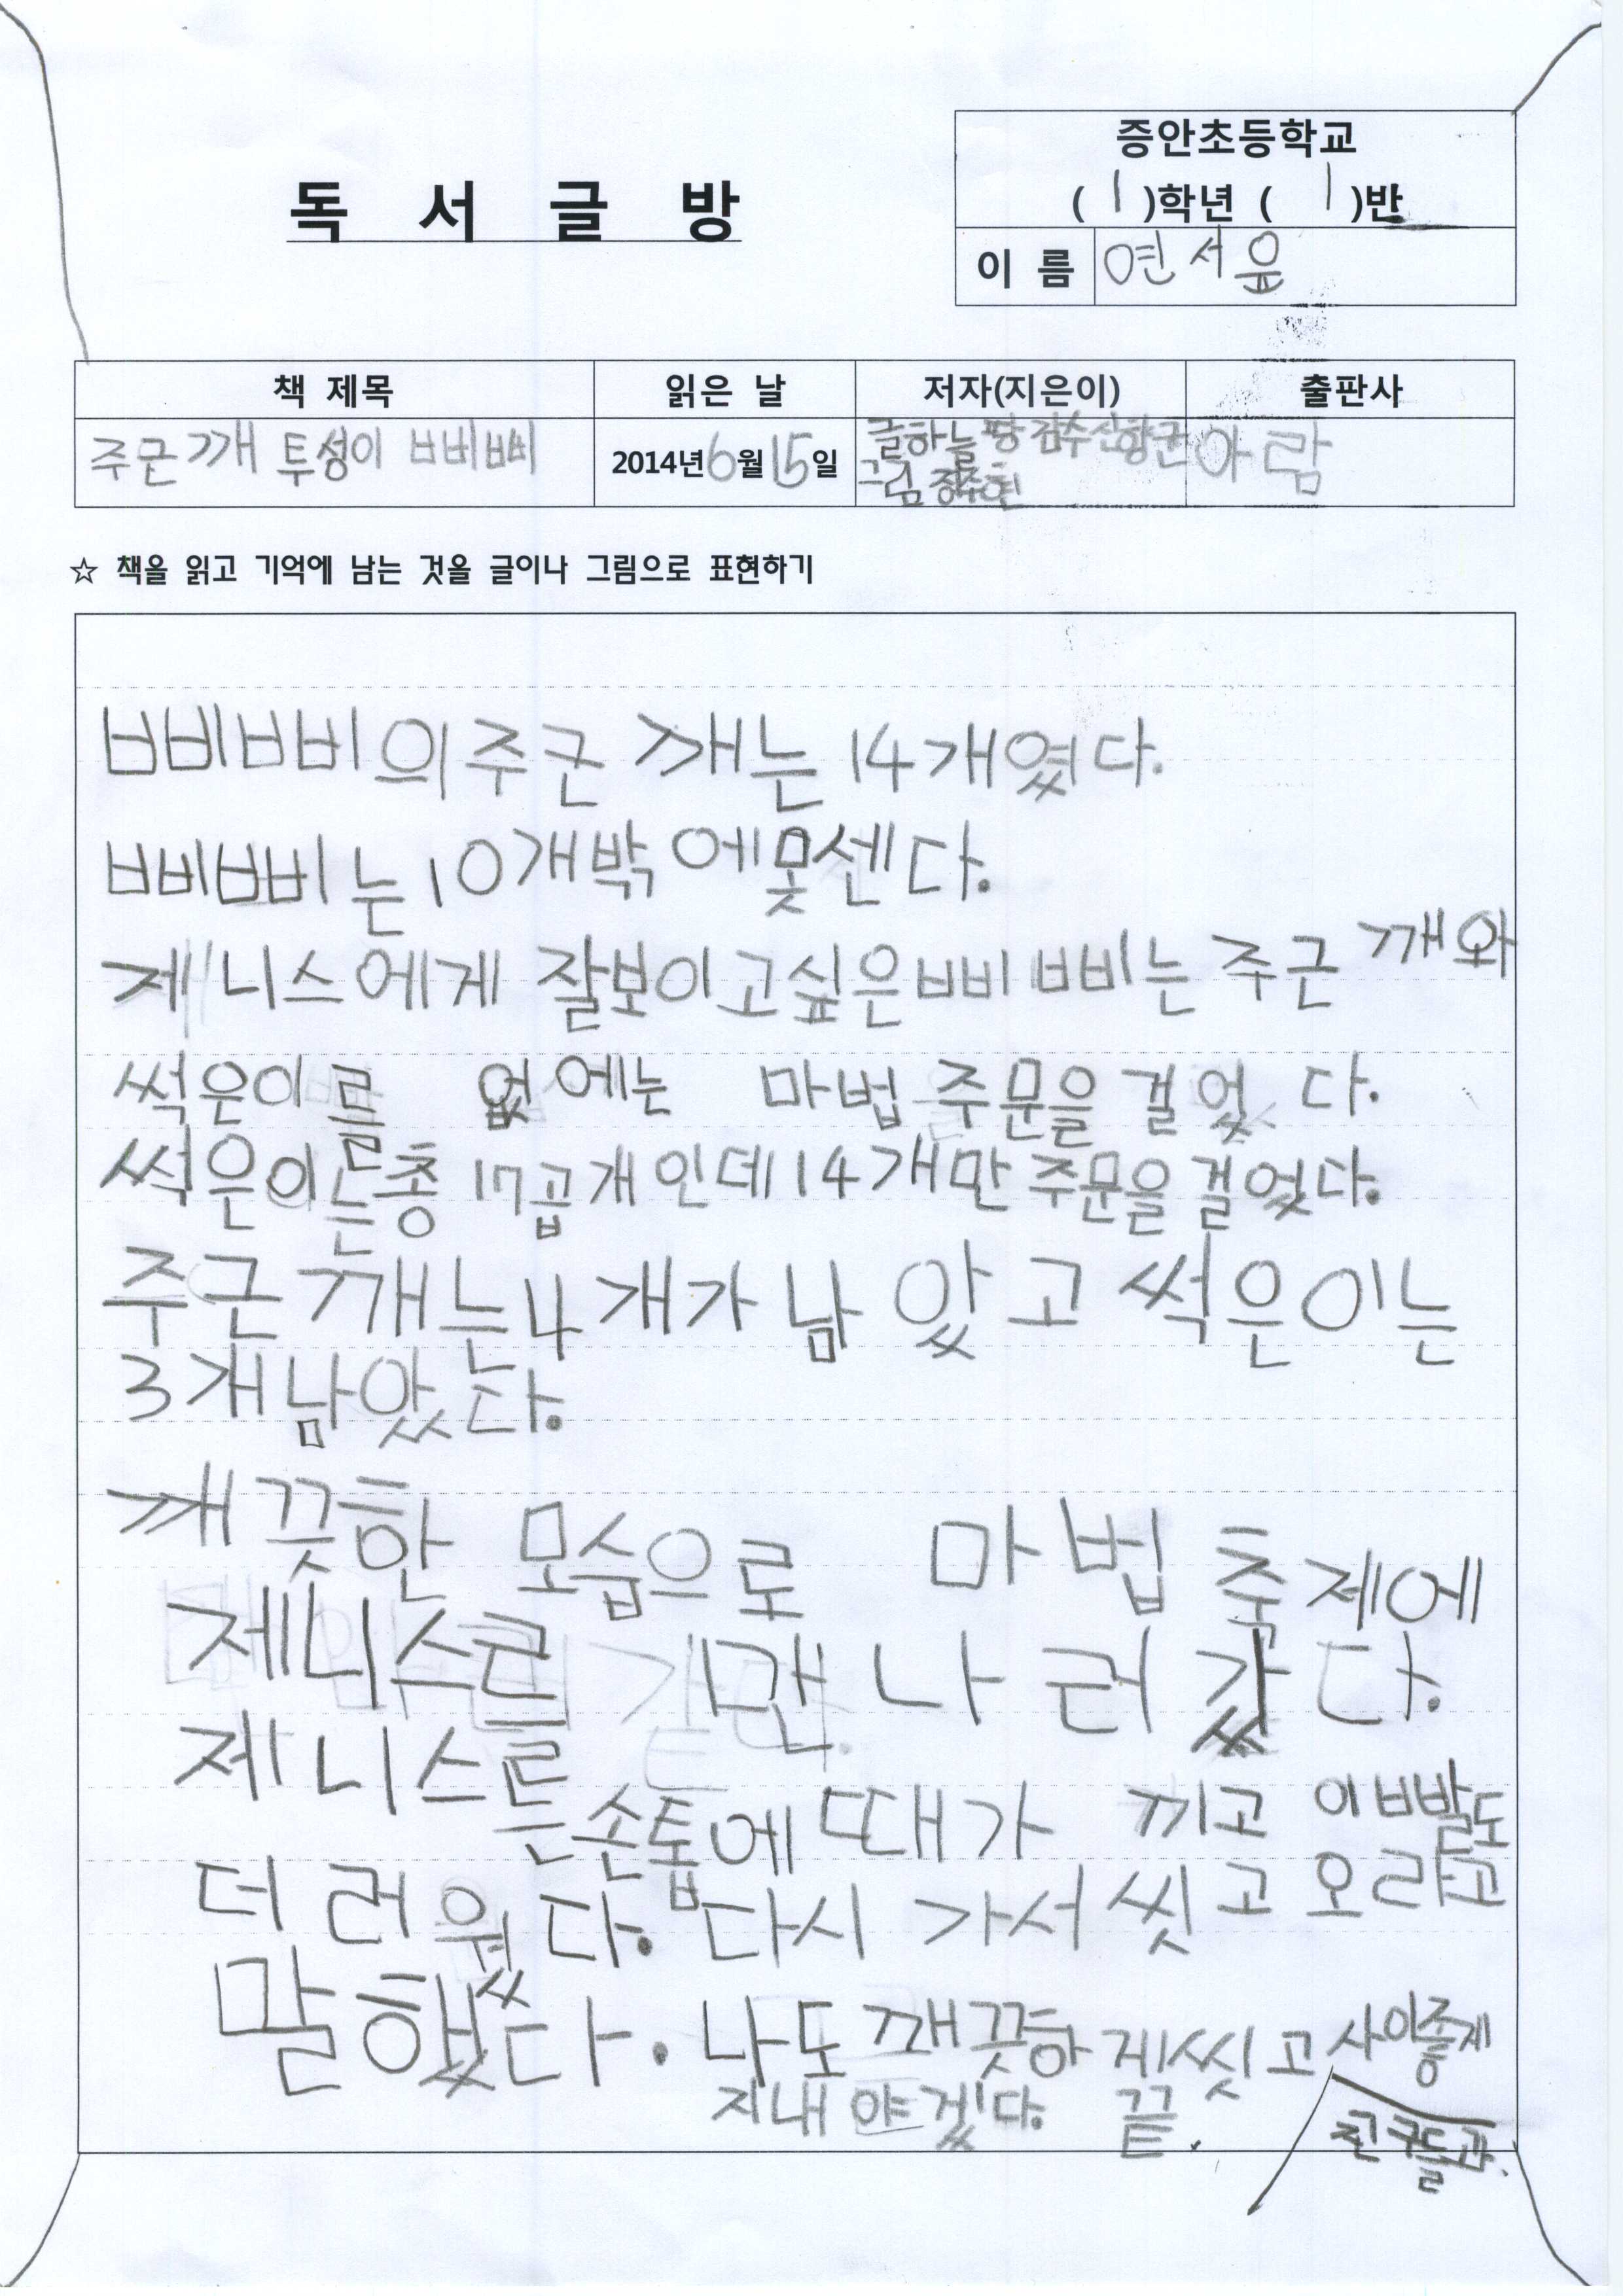 독 서 글 방
증안초등학교
( 1 )학년 ( 1 )반
이 름 연서윤
책 제목 읽은 날 저자(지은이) 출판사
주근깨 투성이 삐삐 2014년6월15일 글하늘땅 감수신항균 아람
그림
☆ 책을 읽고 기억에 남는 것을 글이나 그림으로 표현하기
삐삐의 주근깨는 14개였다.
삐삐는 10개밖에못센다.
제니스에게 잘보이고싶은삐삐는 주근깨와
썩은이를 없에는 마법 주문을 걸었다.
썩은이는총 17곱개인데14개만 주문을 걸었다.
주근깨는4개가 남았고 썩은이는
3개남았다.
깨끗한 모습으로 마법 축제에
제니스를 만나러 갔다.
제니스를
는손톱에 때가 끼고 이빨도
더러웠다. 다시 가서 씻고 오라고
말했다. 나도 깨끗하게씻고 사이좋게
지내야겠다. 끝.
친구들과.